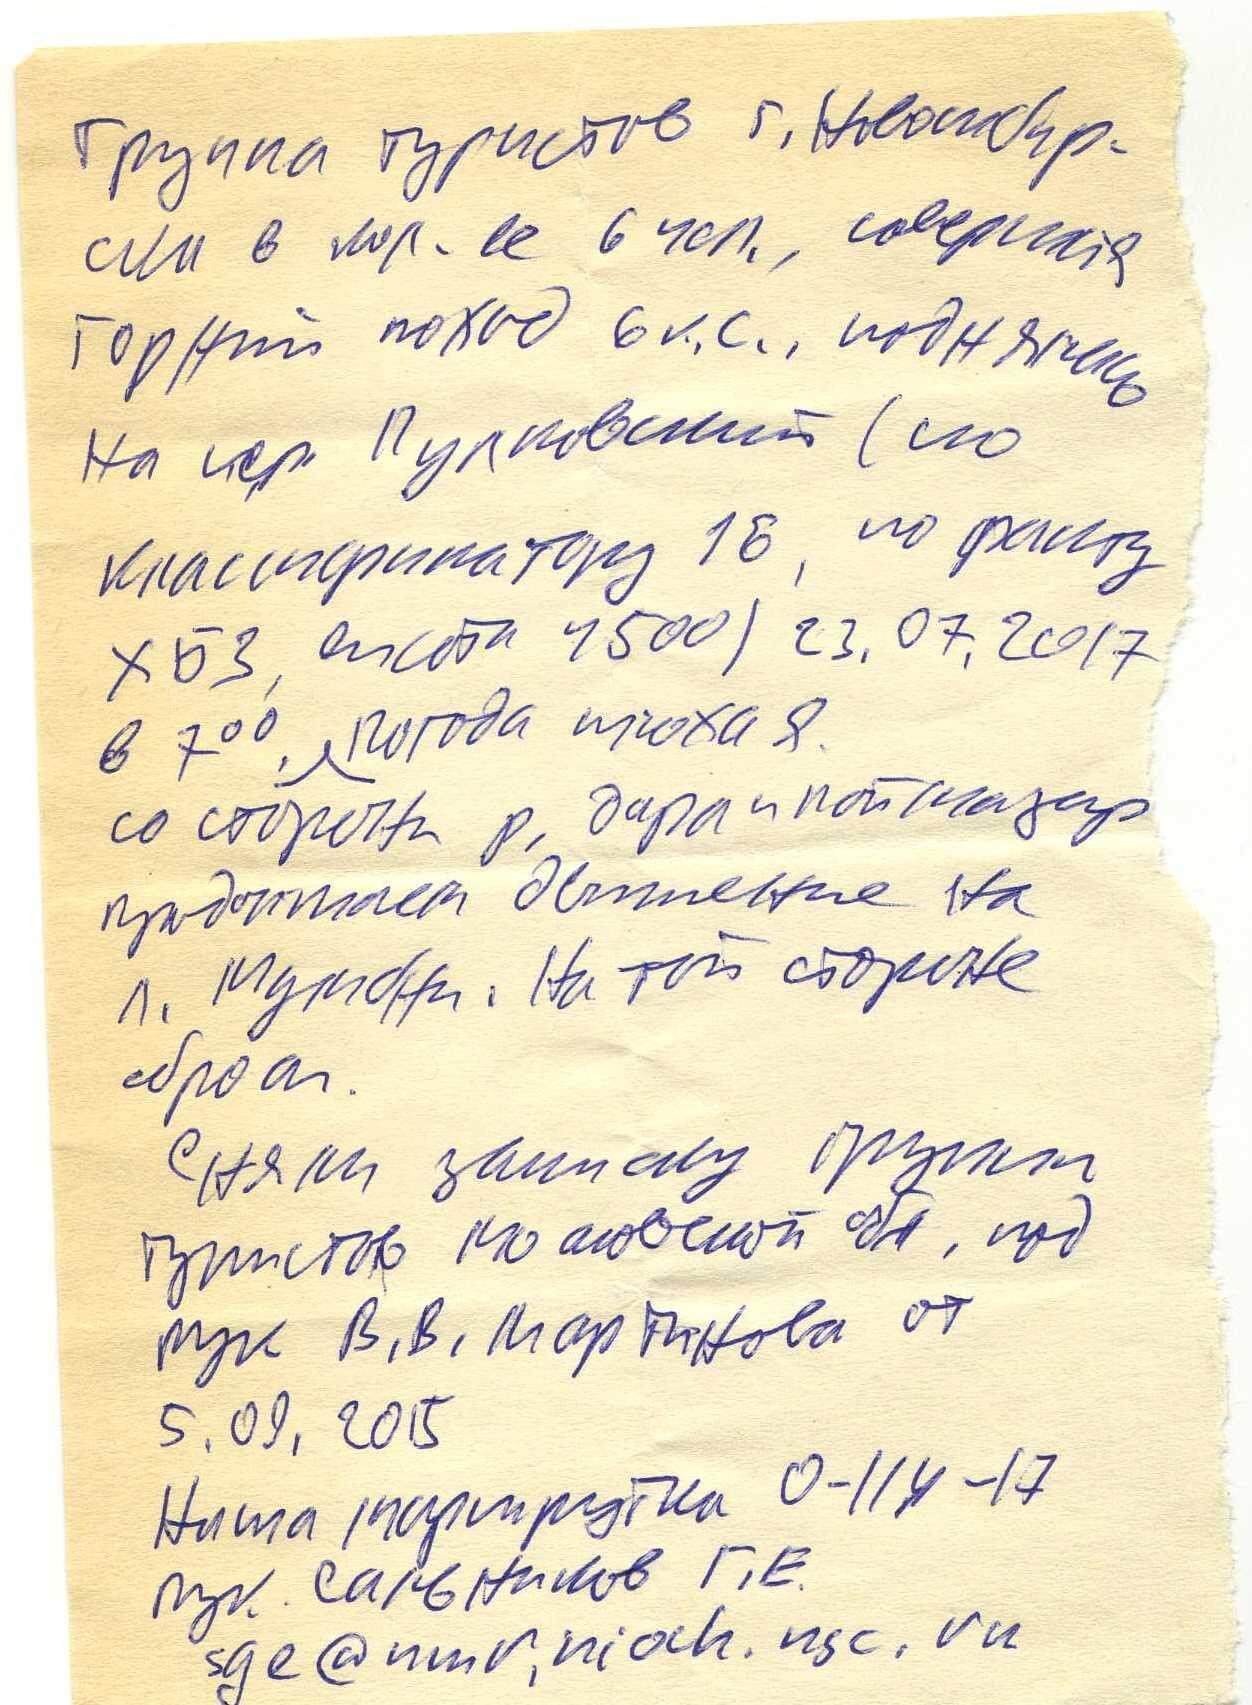 Группа туристов г. Новосибир-
ска в кол-ве 6 чел., совершая
горный поход 6 к.с., поднялись
на пер Пулковский (по
классификатору 1Б, по факту
, высота 4500) 23.07.2017
в 7⁰⁰. Погода плохая.
со стороны р. 
продолжаем движение на
л. На той стороне
сброс.
Сняли записку группы
туристов Московской обл, под
рук В.В. Мартынова от
5.09.2015
Наша маршрутка
рук. Сальников Г.Е.
sge@nmr.nioch.nsc.ru